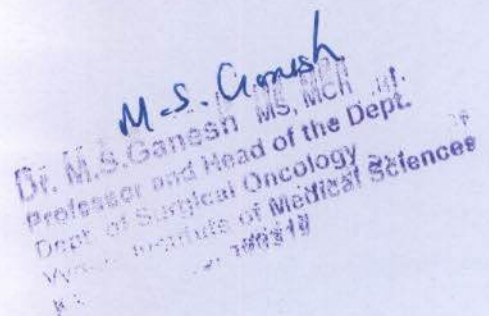 M.S. Ganesh
Dr. M.S.Ganesh MS, MCh
Professor and Head of the Dept.
Dept. of Surgical Oncology
Institute of Medical Sciences